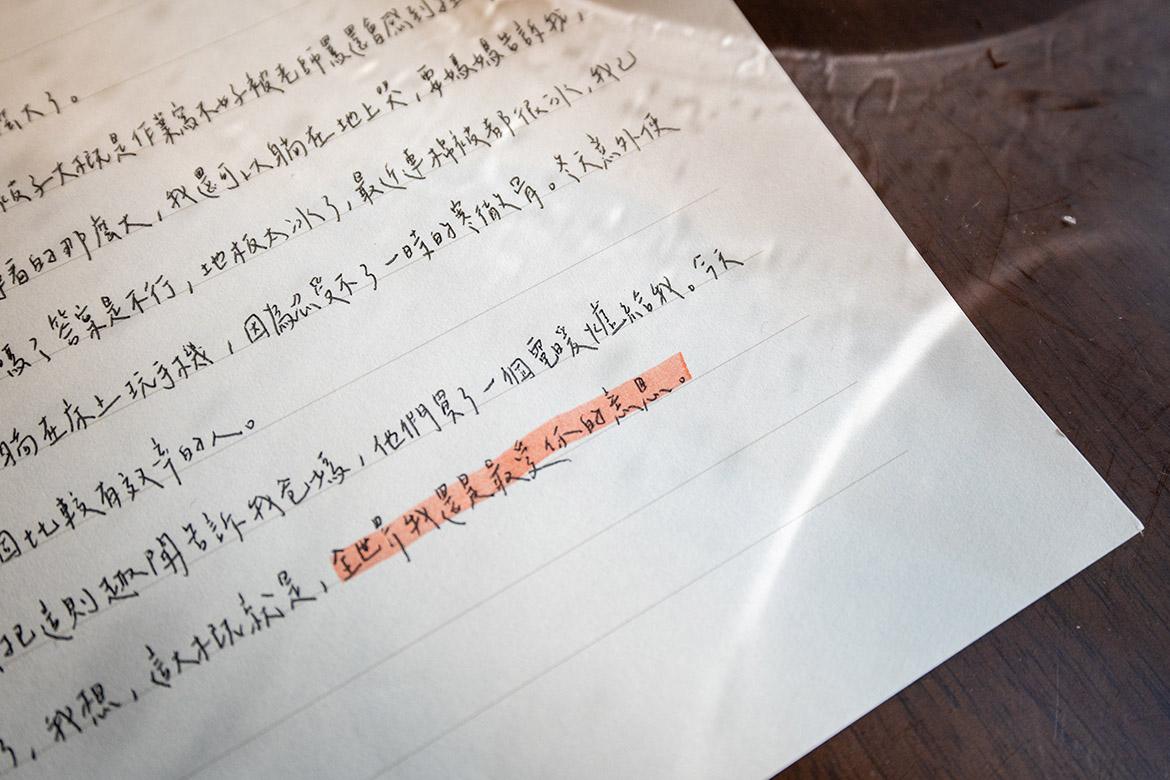 當大了。
板子大概是作業寫不好被老師罵還會感到挫
看的那麼大，我還可以躺在地上哭，要媽媽告訴我，
嗎？答案是不行，地板太冰了，最近連棉被都很冰，我已
躺在床上玩手機，因為忍受不了一時的寒徹骨。冬天意外使
個比較有效率的人。
把這則趣聞告訴我爸媽，他們買了一個電暖爐給我。今天
了，我想，這大概就是，全世界我還是最愛你的意思。